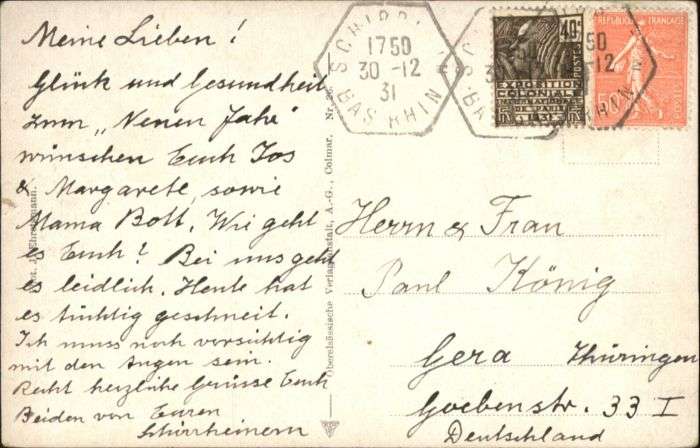 Meine Lieben!
Glück und Gesundheit
zum „Neuen Jahr"
wünschen Euch Jos
& Margarete, sowie
Mama Bott. Wie geht
es Euch? Bei uns geht
es leidlich. Heute hat
es tüchtig geschneit.
Ich muss noch vorsichtig
mit den Augen sein.
Recht herzliche Grüsse Euch
Beiden von Euren
Schirrheinern
Oberelsässische Verlagsanstalt, A.-G., Colmar. Nr.
SCHIRRHEIN
1750
30 -12
31
BAS RHIN
50
-12
RHIN
40c
POSTES
EXPOSITION
COLONIALE
INTERNATIONALE
PARIS
1931
REPUBLIQUE FRANÇAISE
POSTES
Herrn & Frau
Paul König
Gera Thüringen
Goebenstr. 33 I
Deutschland